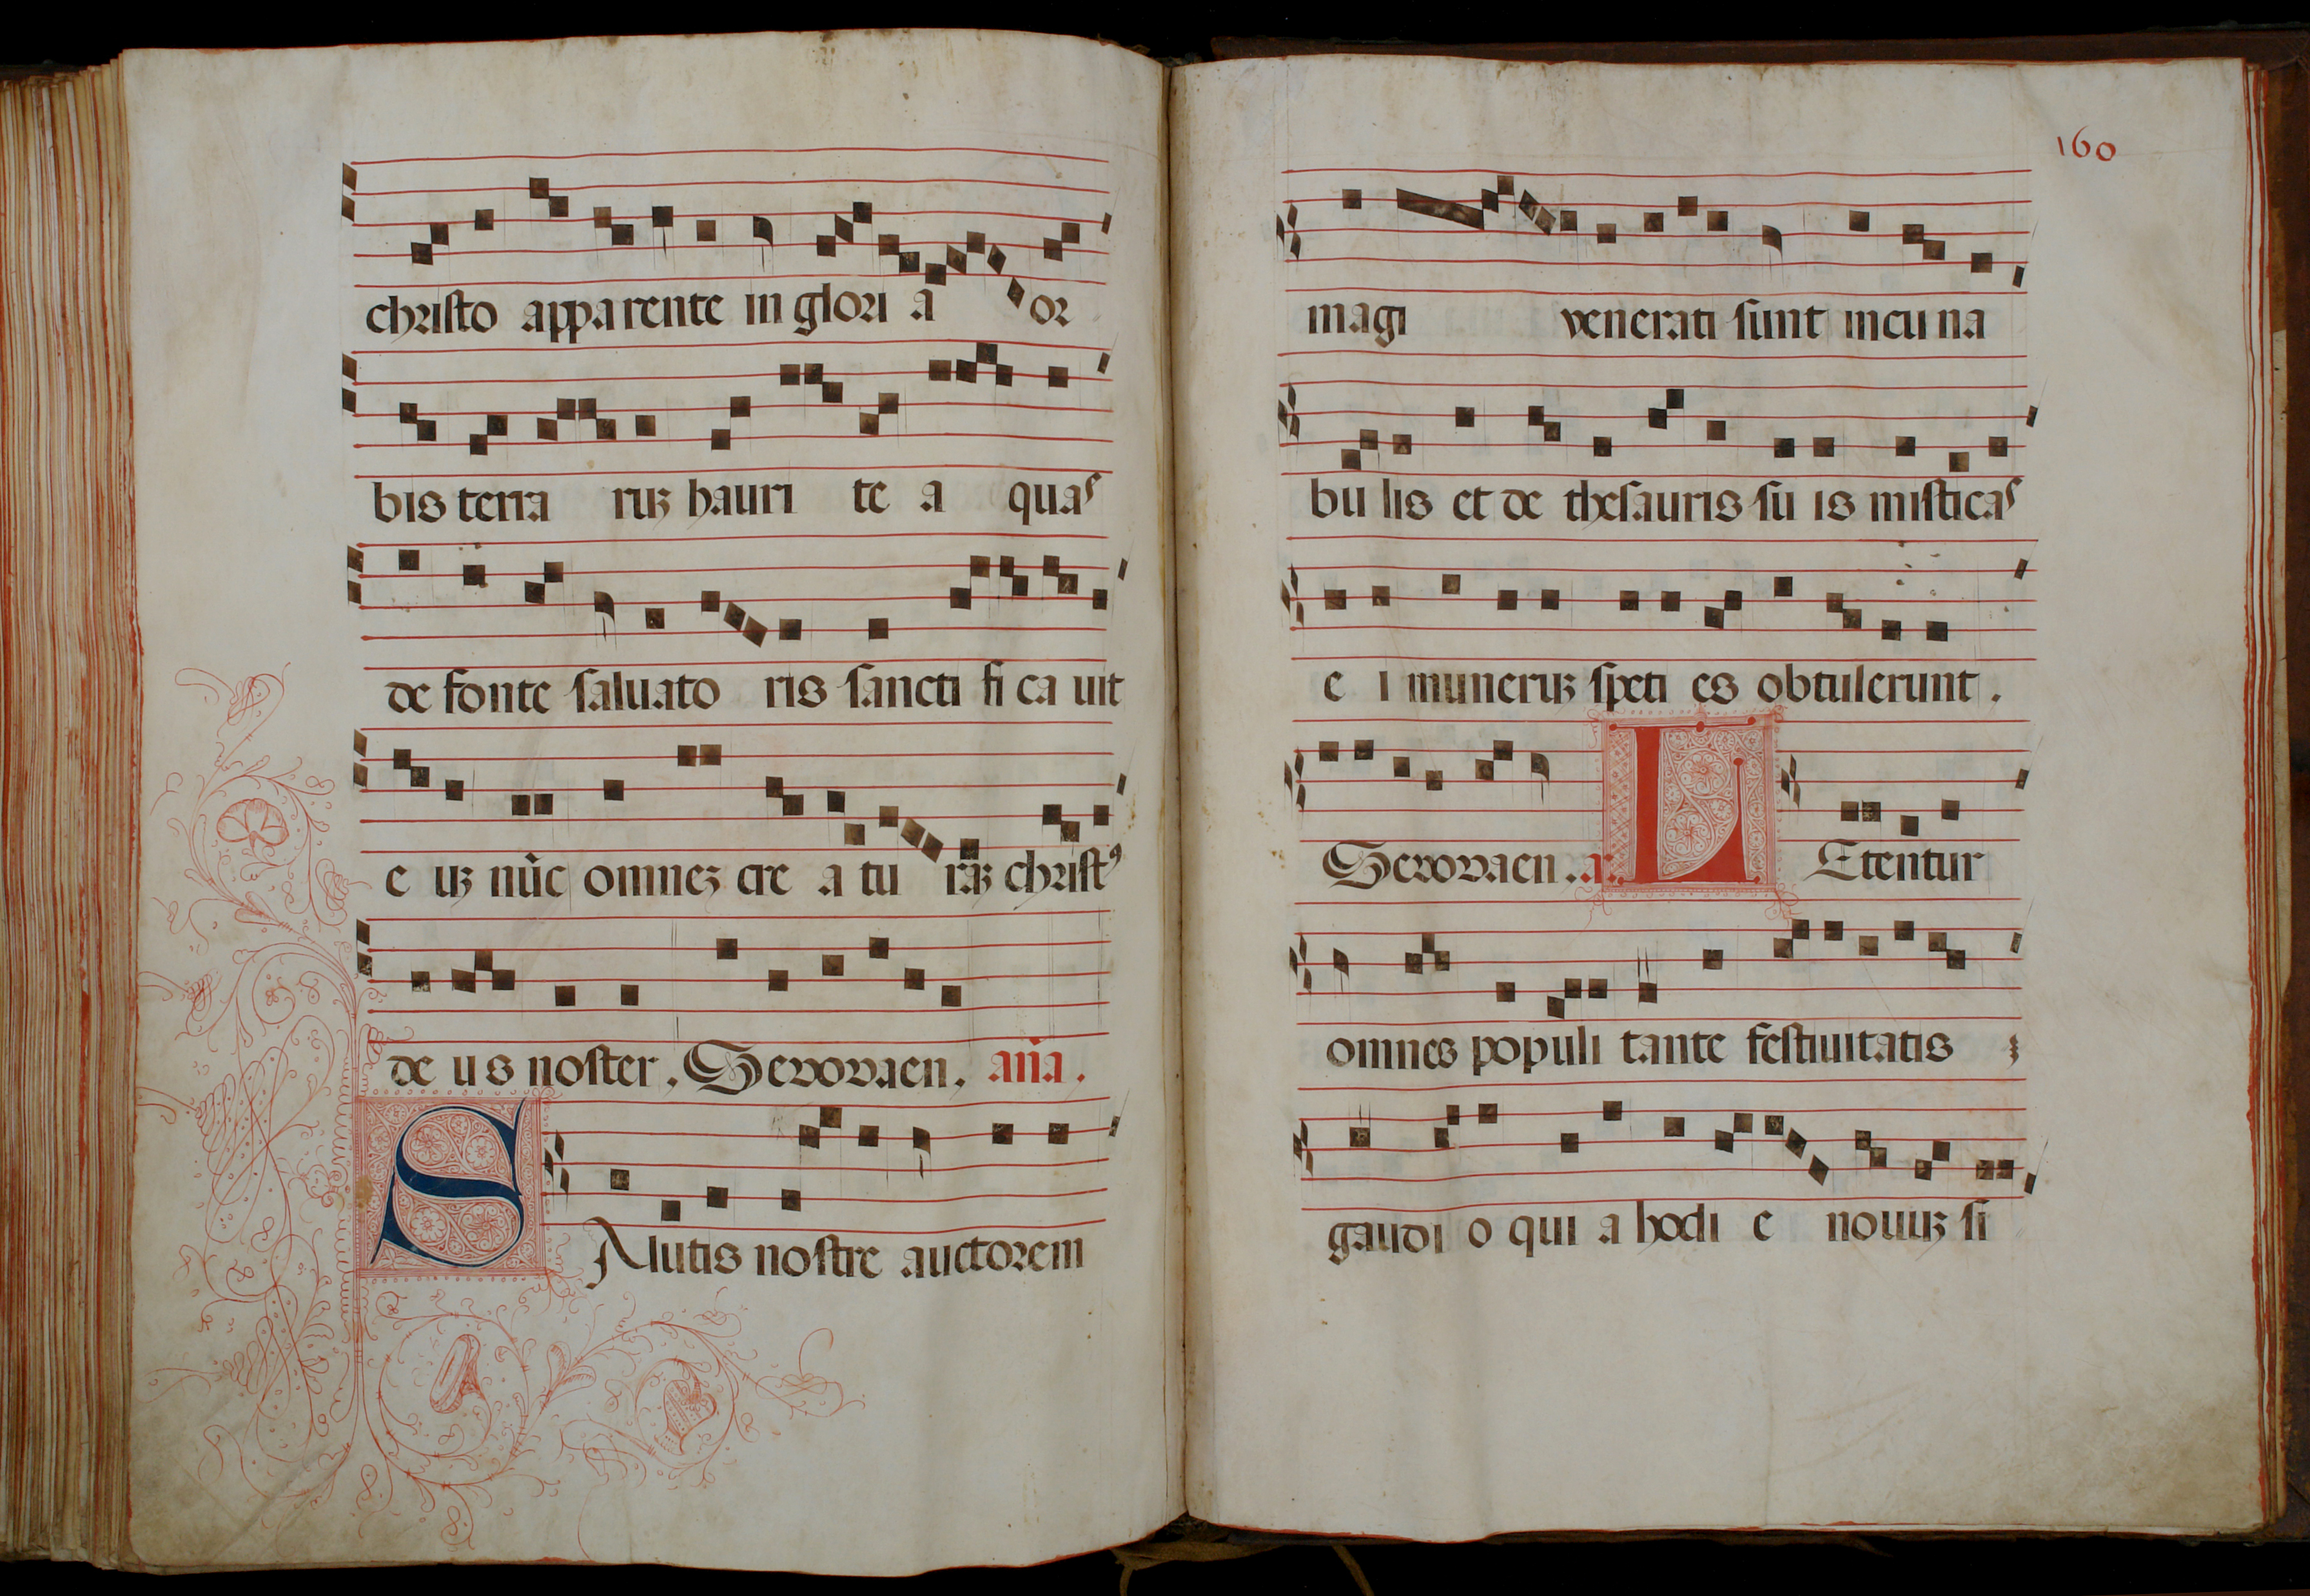 christo apparente in glori a or
bis terra ruꝫ hauri te a quas
de fonte saluato ris sancti fi ca uit
e uꝫ nūc omneꝫ cre a tu raꝫ christꝰ
de us noster. Seuouaen. aña.
SAlutis nostre auctorem
160
magi venerati sunt in cu na
bu lis et de thesauris su is misticas
e i muneruꝫ speti es obtulerunt.
Seuouaen. a.
LEtentur
omnes populi tante festiuitatis ꝫ
gaudi o qui a hodi e nouuꝫ si